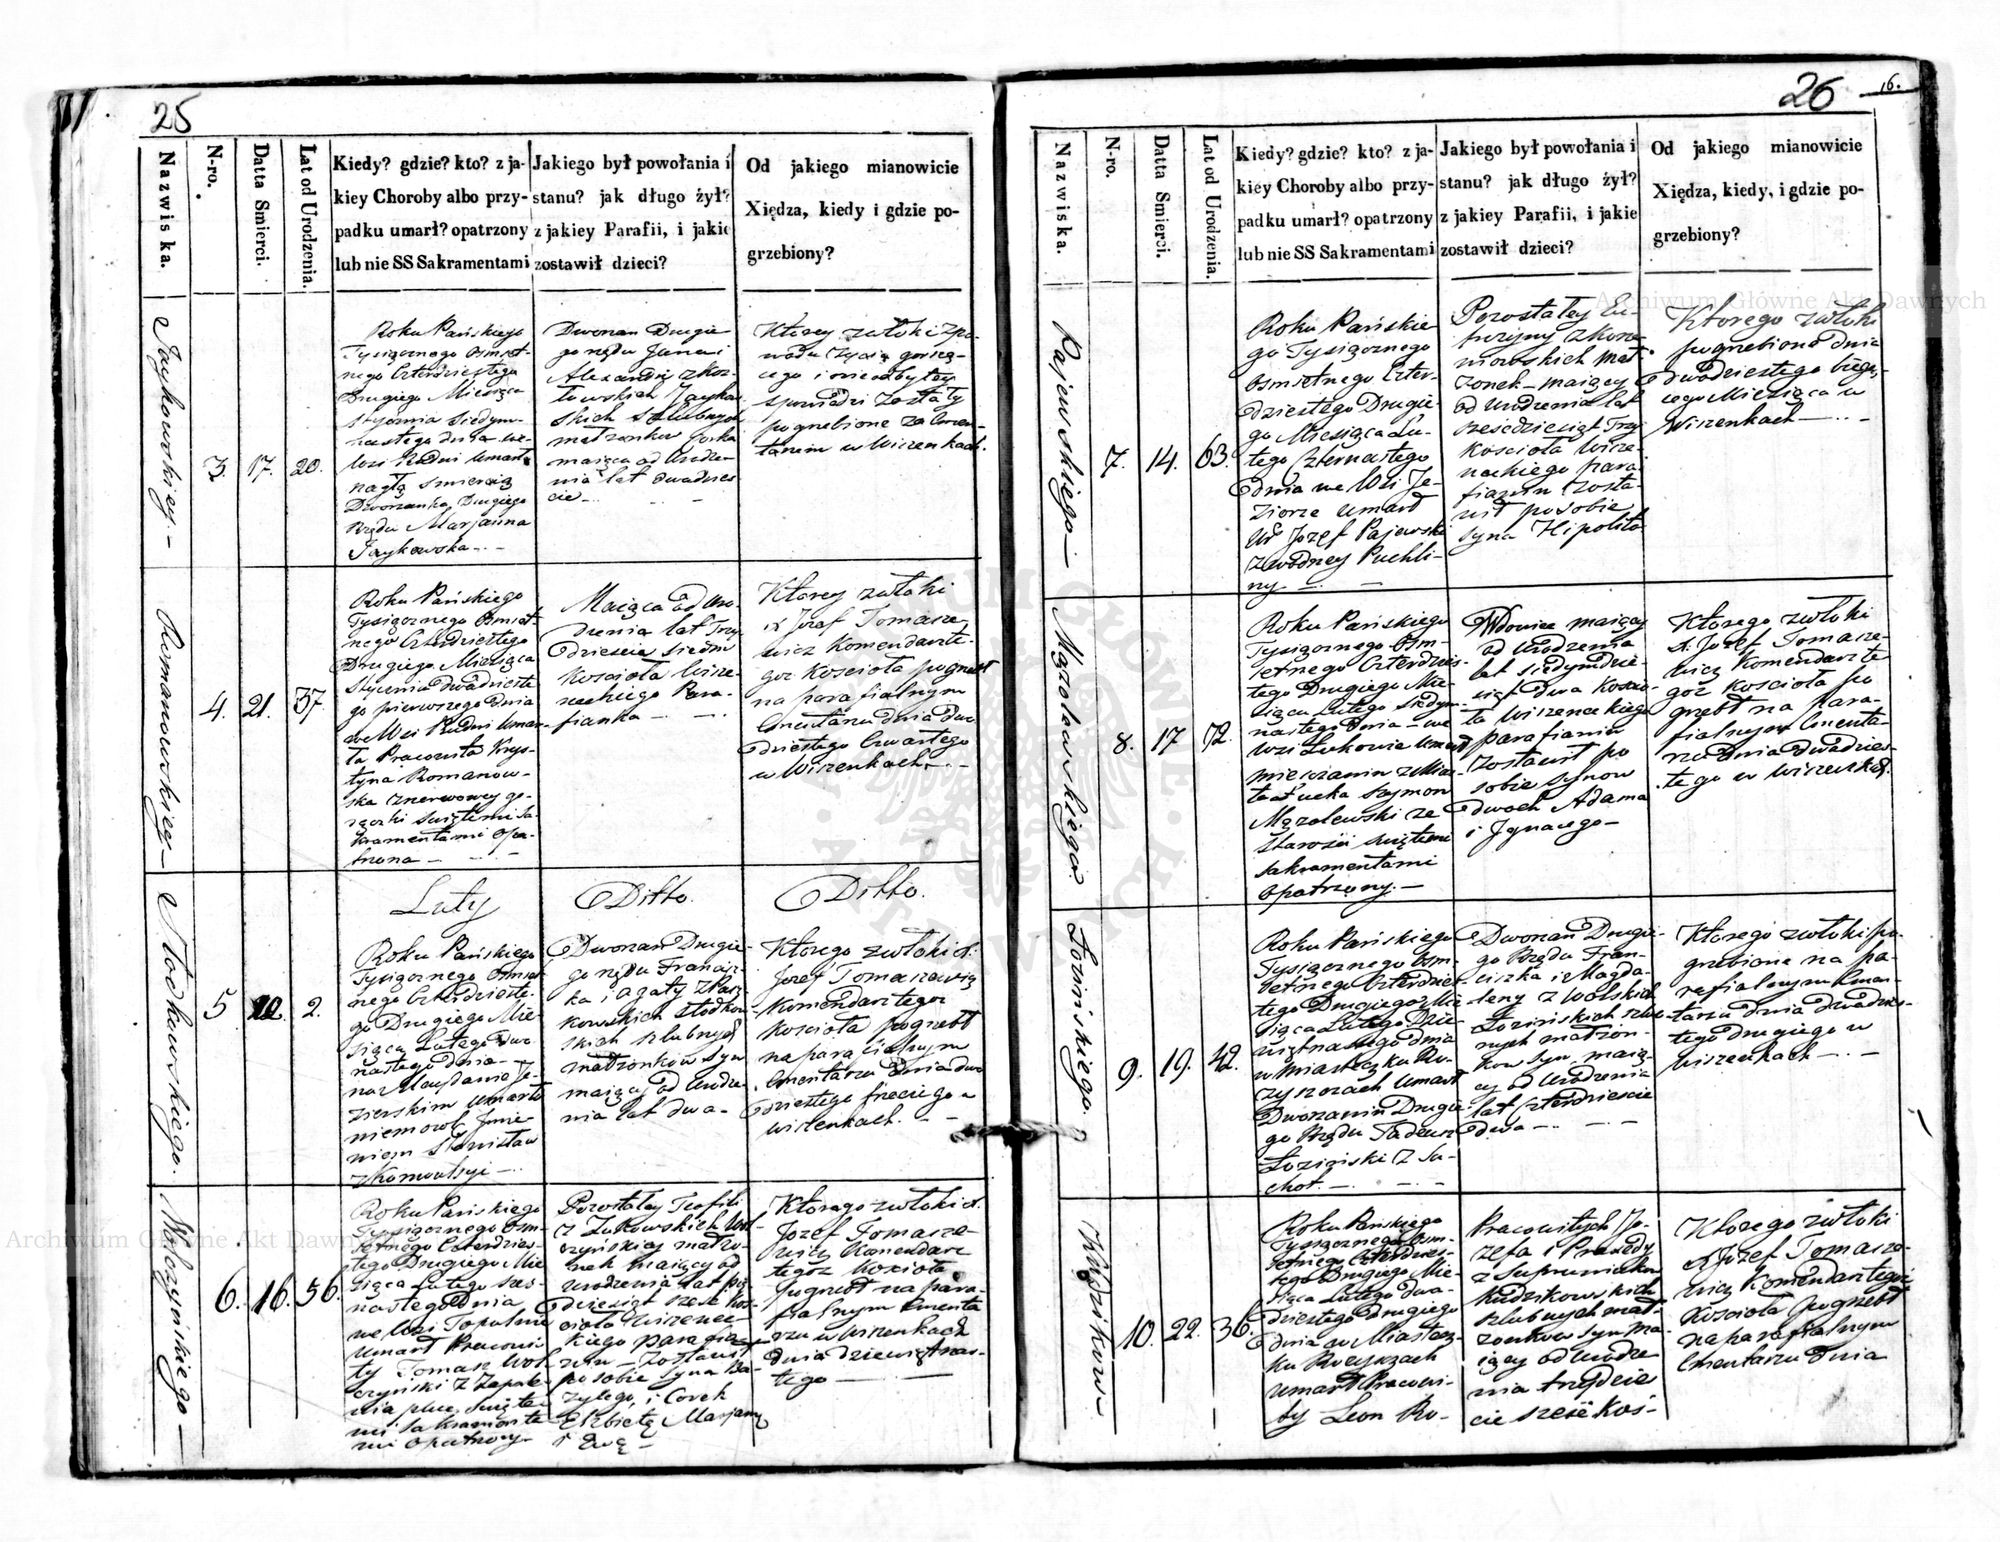 25
Nazwiska.
N-ro.
Datta Smierci.
Lat od Urodzenia.
Kiedy? gdzie? kto? z ja-
kiey Choroby albo przy-
padku umarł? opatrzony
lub nie SS Sakramentami
Jakiego był powołania i
stanu? jak długo żył?
z jakiey Parafii, i jakie
zostawił dzieci?
Od jakiego mianowicie
Xiędza, kiedy i gdzie po-
grzebiony?
3. 17. 20.
Roku Pańskiego
Tysiącznego Osmset-
nego Czterdziestego
Drugiego Miesiąca
Stycznia Siedym-
nastego dnia we
Wsi Rudni umarła
nagłą śmiercią
Dworzanka Drugiego
Rzędu Marjanna
Dworzan Drugie-
go rzędu Jana i
Alexandry z Koz-
łowskich
skich szlubnych
małżonków Corka
maiąca od Urodze-
nia lat dwadzies-
cie
Ktorey zwłoki z po-
wodu życia gorszą-
cego i nieodbytey
spowiedzi zostały
pogrzebione za Cmen-
tarzem w Wiszenkach.
Romanowskiey
4. 21. 37.
Roku Pańskiego
Tysiącznego Osmset-
nego Czterdziestego
Drugiego Miesiąca
Stycznia dwadzieste-
go pierwszego Dnia
we Wsi Rudni umar-
ła Pracowita Krys-
tyna Romanow-
ska z nerwowey go-
rączki Swiętemi Sa-
kramentami opa-
trzona
Maiąca od Uro-
dzenia lat Trzy-
dziescie siedm
Kościoła Wisze-
neckiego Para-
fianka
Ktorey zwłoki
X Jozef Tomasze-
wicz Komendarz te-
goż Kościoła pogrzebł
na parafialnym
Cmentarzu dnia dwa-
dziestego Czwartego
w Wiszenkach.
Słodkowskiego.
5 12. 2.
Luty
Roku Pańskiego
Tysiącznego Osmset-
nego Czterdzieste-
go Drugiego Mie-
siąca Lutego Dwu-
nastego dnia
na Maydanie Je-
zierskim umarło
niemowle Imie-
niem Stanisław
Ditto.
Dworzan Drugie-
go rzędu Francisz-
ka i Agaty
kowskich Słodkow-
skich szlubnych
małżonków Syn
maiący od Urodze-
nia lat dwa
Ditto.
Ktorego zwłoki X.
Jozef Tomaszewicz
Komendarz tegoż
Kościoła pogrzebł
na parafialnym
Cmentarzu Dnia dwu-
dziestego trzeciego w
Wiszenkach.
Wołczyńskiego
6. 16. 56.
Roku Pańskiego
Tysiącznego Osm-
setnego Czterdzies-
tego Drugiego Mie-
siąca Lutego Szes-
nastego Dnia
we Wsi Topolnie
umarł Pracowi-
ty Tomasz Woł-
czyński z Zapale-
nia płuc, Swięte-
mi Sakramenta-
mi opatrzony
Pozostałey Teofili
z Żukowskich Woł-
czyńskiey małżo-
nek maiący od
Urodzenia lat pięć-
dziesiąt sześć Koś-
cioła Wiszenec-
kiego parafia-
nin Zostawił
po sobie Syna Ba-
zylego, i Corek
Elżbietę Marjannę
i Ewę
Ktorego zwłoki X.
Jozef Tomasze-
wicz Komendarz
tegoż Kościoła
pogrzebł na para-
fialnym Cmenta-
rzu w Wiszenkach
dnia dziewiętnas-
tego
26
16.
Nazwiska.
N-ro.
Datta Smierci.
Lat od Urodzenia.
Kiedy? gdzie? kto? z ja-
kiey Choroby albo przy-
padku umarł? opatrzony
lub nie SS Sakramentami
Jakiego był powołania i
stanu? jak długo żył?
z jakiey Parafii, i jakie
zostawił dzieci?
Od jakiego mianowicie
Xiędza, kiedy, i gdzie po-
grzebiony?
Pajewskiego
7. 14. 63.
Roku Pańskie-
go Tysiącznego
Osmsetnego Czter-
dziestego Drugie-
go Miesiąca Lu-
tego Czternastego
dnia we Wsi Je-
ziorze umarł
Jozef Pajewski
z wodney Puchli-
ny
Pozostałey Eu-
frozyny
mał-
żonek maiący
od Urodzenia lat
sześćdziesiąt Trzy
Kościoła Wisze-
neckiego para-
fianin Zosta-
wił po sobie
syna Hipolita
Ktorego zwłoki
pogrzebione dnia
dwudziestego bieżą-
cego Miesiąca w
Wiszenkach
8. 17 72.
Roku Pańskiego
Tysiącznego Osm-
setnego Czterdzies-
tego Drugiego Mie-
siąca Lutego Siedym-
nastego dnia we
Wsi Żukowie umarł
mieszczanin z Mias-
ta Łucka Szymon
ze
Starości Swiętemi
Sakramentami
opatrzony.
Wdowiec maiący
od Urodzenia
lat siedymdzie-
siąt dwa Kościo-
ła Wiszeneckiego
parafianin
zostawił po
sobie synow
dwoch Adama
i Ignacego
Ktorego zwłoki
X. Jozef Tomasze-
wicz Komendarz te-
goż Kościoła po-
grzebł na para-
fialnym Cmenta-
rzu dnia dwudzies-
tego w Wiszenkach.
Łozińskiego.
9. 19. 42.
Roku Pańskiego
Tysiącznego Osm-
setnego Czterdzies-
tego Drugiego Mie-
siąca Lutego Dzie-
więtnastego dnia
w Miasteczku Ro-
żyszczach umarł
Dworzanin Drugie-
go Rzędu Tadeusz
Łoziński z Su-
chot.
Dworzan Drugie-
go Rzędu Fran-
ciszka i Magda-
leny z Wolskich
Łozińskich szlu-
bnych małżon-
kow Syn maią-
cy od Urodzenia
lat Czterdziescie
dwa
Ktorego zwłoki po-
grzebione na pa-
rafialnym Cmen-
tarzu dnia dwudzies-
tego drugiego w
Wiszenkach
10. 22. 36.
Roku Pańskiego
Tysiącznego Osm-
setnego Czterdzies-
tego Drugiego Mie-
siąca Lutego dwu-
dziestego drugiego
dnia w Miastecz-
ku Rożyszczach
umarł Pracowi-
ty Leon
Pracowitych Jo-
zefa i Praxedy
szlubnych mał-
żonkow syn ma-
iący od Urodze-
nia trzydzie-
cie sześć Koś-
Ktorego zwłoki
X Jozef Tomasze-
wicz Komendarz tegoż
Kościoła pogrzebł
na parafialnym
Cmentarzu dnia
Archiwum Główne Akt Dawnych
Archiwum Główne Akt Dawnych